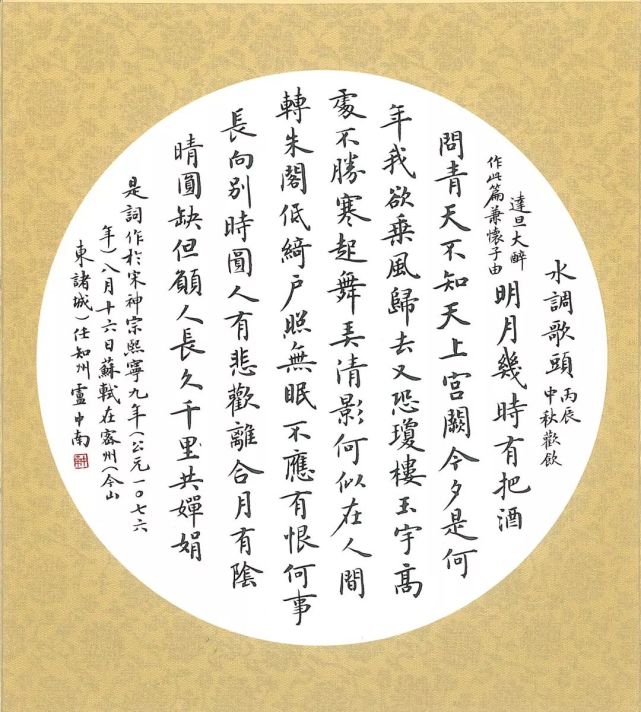 水調歌頭
丙辰
中秋歡飲
達旦大醉
作此篇兼懷子由
明月幾時有把酒
問青天不知天上宮闕今夕是何
年我欲乘風歸去又恐瓊樓玉宇高
處不勝寒起舞弄清影何似在人間
轉朱閣低綺户照無眠不應有恨何事
長向别時圓人有悲歡離合月有陰
晴圓缺但願人長久千里共嬋娟
是詞作於宋神宗熙寧九年(公元一〇七六
年)八月十六日蘇軾在密州(今山
東諸城)任知州盧中南